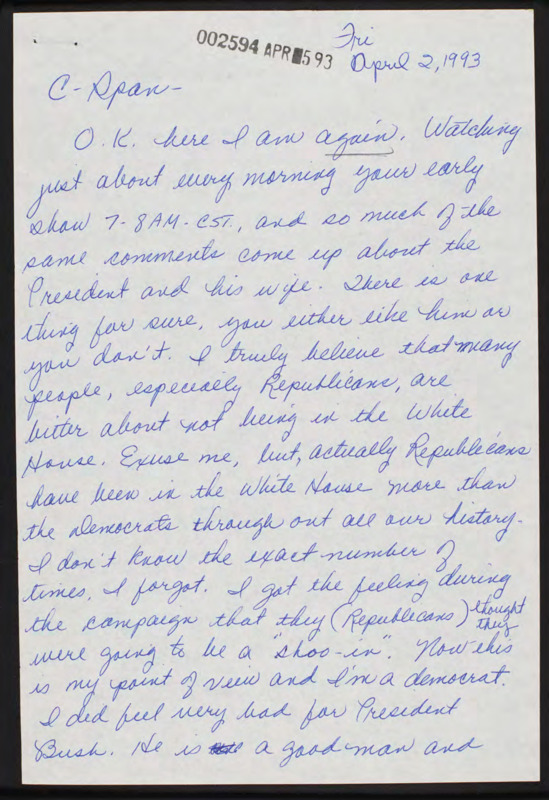 Fri
002594 APR 5 93
April 2, 1993
C-Span-
O.K. here I am again. Watching
just about every morning your early
show 7-8 AM-CST., and so much of the
same comments come up about the
President and his wife. There is one
thing for sure, you either like him or
you don't. I truly believe that many
people, especially Republicans, are
bitter about not being in the White
House. Exuse me, but, actually Republicans
have been in the White House more than
the Democrats through out all our history.
I don't know the exact number of
times. I forgot. I got the feeling during
the campaign that they (Republicans) thought they
were going to be a "shoo-in". Now this
is my point of view and I'm a democrat.
I did feel very bad for President
Bush. He is a good man and